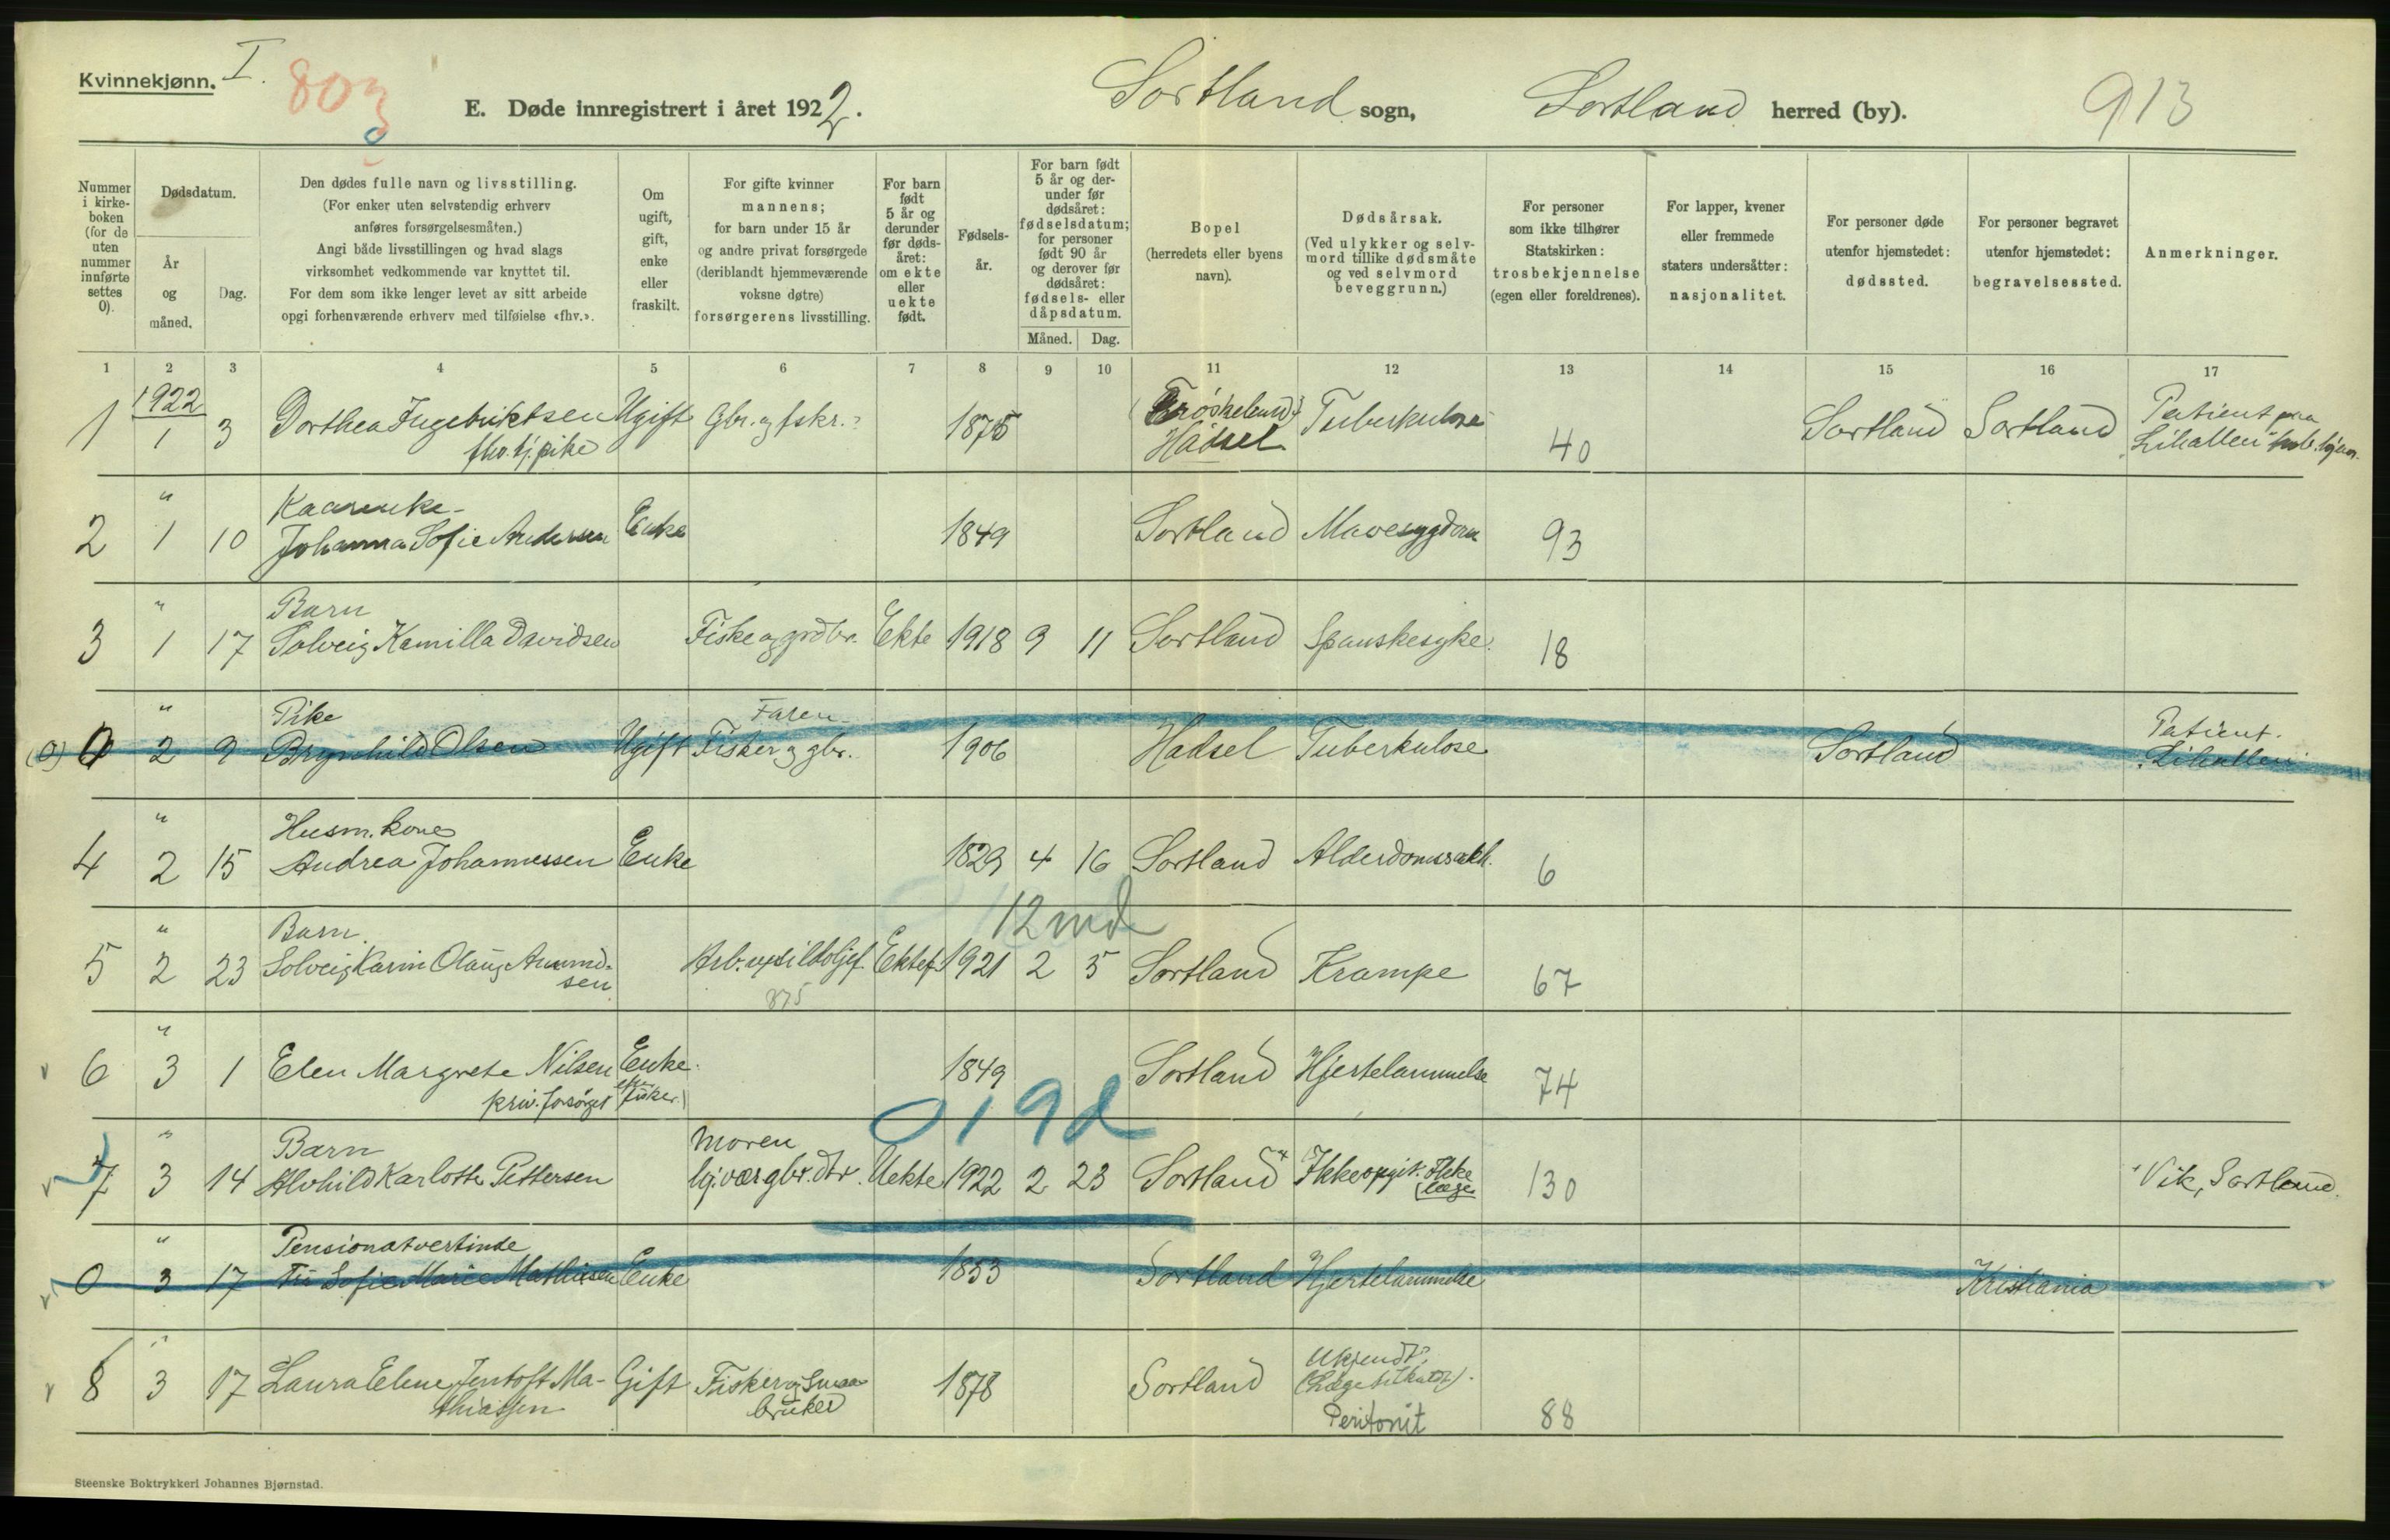 Kvinnekjønn. I.
803
E. Døde innregistrert i året 1922. Sortland sogn, Sortland herred (by). 913
Nummer i kirkeboken (for de uten nummer innførte settes 0).
Dødsdatum.
År og måned.
Dag.
Den dødes fulle navn og livsstilling.
(For enker uten selvstendig erhverv
anføres forsørgelsesmåten.)
Angi både livsstillingen og hvad slags
virksomhet vedkommende var knyttet til.
For dem som ikke lenger levet av sitt arbeide
opgi forhenværende erhverv med tilføielse «fhv.».
Om ugift, gift, enke eller fraskilt.
For gifte kvinner
mannens;
for barn under 15 år
og andre privat forsørgede
(deriblandt hjemmeværende
voksne døtre)
forsørgerens livsstilling.
For barn født 5 år og derunder før dødsåret: om ekte eller uekte født.
Fødselsår.
For barn født 5 år og derunder før dødsåret: fødselsdatum; for personer født 90 år og derover før dødsåret: fødsels- eller dåpsdatum.
Måned. Dag.
Bopel
(herredets eller byens
navn).
Dødsårsak.
(Ved ulykker og selvmord tillike dødsmåte og ved selvmord beveggrunn.)
For personer
som ikke tilhører
Statskirken:
trosbekjennelse
(egen eller foreldrenes).
For lapper, kvener
eller fremmede
staters undersåtter:
nasjonalitet.
For personer døde
utenfor hjemstedet:
dødssted.
For personer begravet
utenfor hjemstedet:
begravelsessted.
Anmerkninger.
1 2 3 4 5 6 7 8 9 10 11 12 13 14 15 16 17
1922
1 1 3 Dorthea Ingebriktsen Ugift Gbr. og fskr. 1875 Hadsel Tuberkulose 40 Sortland Sortland Patient paa
fhv. tj. pike
" Kaarenke
2 1 10 Johanna Sofie Andersen Enke 1849 Sortland Mavesygdom 93
" Barn
3 1 17 Solveig Kamilla Davidsen Fiske og grdbr. Ekte 1918 9 11 Sortland Spanskesyke. 18
" Pike Faren
(0) 0 2 9 Brynhild Olsen Ugift Fisker og gbr. 1906 Hadsel Tuberkulose Sortland Patient.
" Husm. kone
4 2 15 Andrea Johannessen Enke 1829 4 16 Sortland Alderdomssvakh. 6
" Barn 12 md
5 2 23 Solveig Karin Olaug Amundsen Ektef. 1921 2 5 Sortland Krampe 67
875
"
6 3 1 Elen Margrete Nilsen Enke 1849 Sortland Hjertelammelse 74
priv. forsørget efter fisker.
0 19 d
" Barn Moren
7 3 14 Alvhild Karlotte Pettersen Uekte 1922 2 23 Sortland Ikke opgit. Ikke læge 130 Vik, Sortland.
" Pensionatvertinde
0 3 17 Fru Sofie Marie Mathiesen Enke 1853 Sortland Hjertelammelse Kristiania
"
8 3 17 Laura Elene Jentoft Mathiassen Gift Fisker og smaabruker 1878 Sortland Ukjendt? (Læge tilkaldt). Peritonit 88
Steenske Boktrykkeri Johannes Bjørnstad.